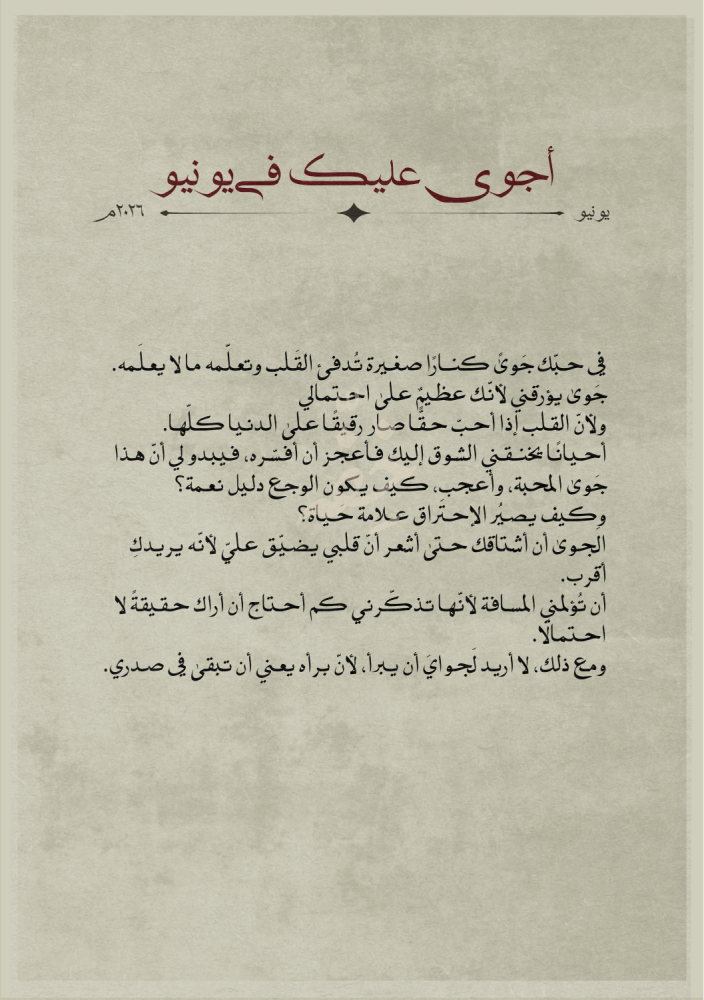 أجوى عليك في يونيو
يونيو
٢٠٢٦م
في حبّك جَوىً كنارًا صغيرة تُدفئ القَلب وتعلّمه مالا يعلَمه.
جَوىٰ يؤرقني لأنّك عظيمٌ علىٰ احتمالي
ولأنّ القلب إذا أحبّ حقًّا صار رقيقًا علىٰ الدنيا كلّها.
أحيانًا يخنقني الشوق إليك فأعجز أن أفسّره، فيبدو لي أنّ هذا
جَوىٰ المحبة، وأعجب، كيف يكون الوجع دليل نعمة؟
وكيف يصيُر الإحتَراق علامة حياة؟
الجوىٰ أن أشتاقك حتىٰ أشعر أنّ قلبي يضيّق عليّ لأنّه يريدكِ
أقرب.
أن تُؤلمني المسافة لأنّها تذكّرني كم أحتاج أن أراك حقيقةً لا
احتمالًا.
ومع ذلك، لا أريد لَجوايَ أن يبرأ، لأنّ برأه يعني أن تبقىٰ في صدري.